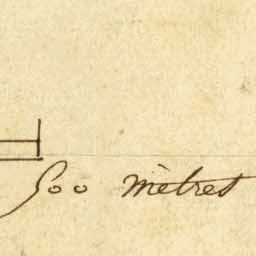 500 mètres